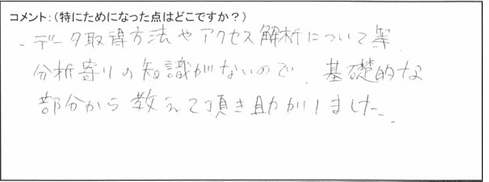 コメント：（特にためになった点はどこですか？）
・データ取得方法やアクセス解析について等
分析寄りの知識がないので、基礎的な
部分から教えて頂き助かりました。